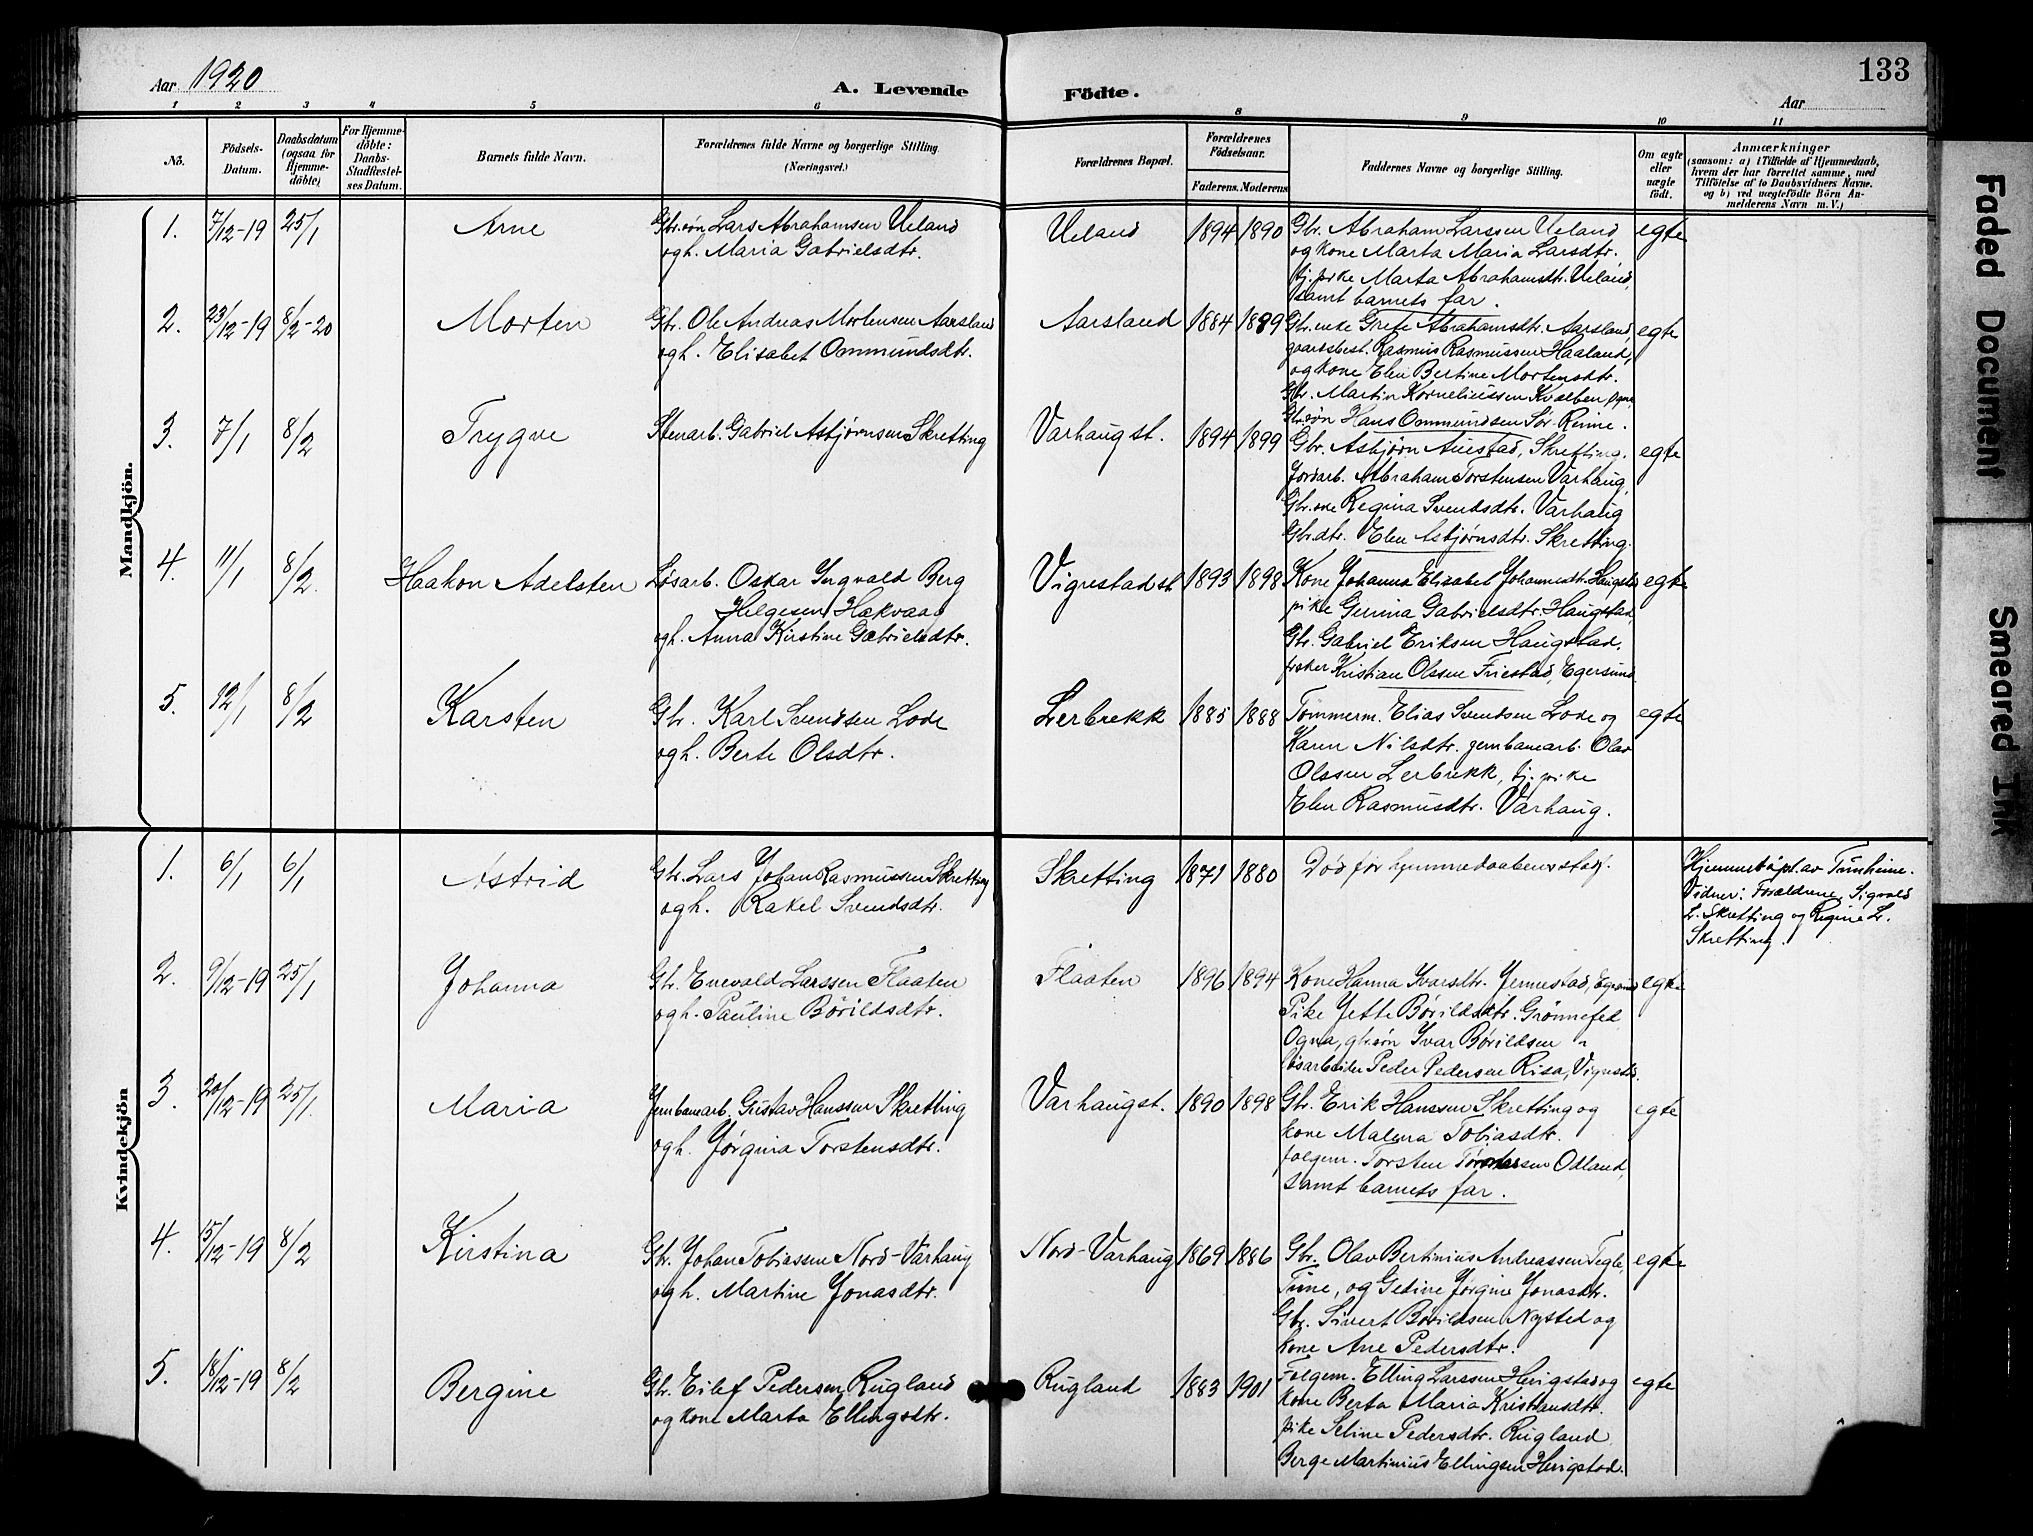 133
Aar 1920
A. Levende Födte.
Aar
1 2 3 4 5 6 8 9 10 11
No.
Födsels-
Datum.
Daabsdatum
(ogsaa for
Hjemme-
döbte)
For Hjemme-
döbte:
Daabs-
Stadfæstel-
ses Datum.
Barnets fulde Navn.
Forældrenes fulde Navne og borgerlige Stilling
(Næringsvei.)
Forældrenes Bopæl.
Forældrenes
Födselsaar.
Faderens. Moderens
Faddernes Navne og borgerlige Stilling.
Om ægte
eller
uægte
födt.
Anmærkninger
(saasom: a) i Tilfælde af Hjemmedaab,
hvem der har forrettet samme, med
Tilföielse af to Daabsvidners Navne.
og b) ved uægtefödte Börn An-
melderens Navn m. V.)
Mandkjön.
1. 7/12-19 25/1 Arne
Gbr.søn Lars Abrahamsen Ueland
og h. Maria Gabrielsdtr.
Ueland 1894 1890
Gbr. Abraham Larssen Ueland
og kone Marta Maria Larsdtr.
tj. pike Marta Abrahamsdtr. Ueland,
samt barnets far.
egte
2. 23/12-19 8/2-20 Morten
Gbr. Ole Andreas Mortensen Aarsland
og h. Elisabet Ommundsdtr.
Aarsland 1884 1889
Gbr.enke Grete Abrahamsdtr. Aarsland,
gaardsbest. Rasmus Rasmussen Haaland,
og kone Elen Bertine Mortensdtr.
Gbr. Martin Korneliussen Kvalben
Gbr.søn Hans Ommundsen Sør. Reime.
egte
3. 7/1 8/2 Trygve
Stenarb. Gabriel Asbjørnsen Skretting
Varhaug st. 1894 1899
Gbr. Asbjørn Auestad, Skretting.
Jordarb. Abraham Torstensen Varhaug,
Gbr.kone Regina Svendsdtr. Varhaug
Gbr.dtr. Elen Asbjørnsdtr. Skretting.
egte
4. 11/1 8/2. Haakon Adelsten
Løsarb. Oskar Ingvald Berg
Helgesen Hækvaag
og h. Anna Kirstine Gabrielsdtr.
Vigrestad st. 1893 1898
Kone Johanna Elisabet Johannesdtr. Haugstad
pike Gurina Gabrielsdtr. Haugstad,
Gbr. Gabriel Eriksen Haugstad.
fisker Kristian Olssen Friestad, Egersund
egte
5. 12/1 8/2 Karsten
Gbr. Karl Svendsen Lode
og h. Berte Olsdtr.
Lerbrekk 1885 1888
Tømmerm. Elias Svendsen Lode og
Karen Nilsdtr. jernbanearb. Olav
Olssen Lerbrekk, tj. pike
Elen Rasmusdtr. Varhaug.
egte
Kvindekjön
1. 6/1 6/1 Astrid
Gbr. Lars Johan Rasmussen Skretting
og h. Rakel Svendsdtr.
Skretting 1871 1880
Død før hjemmedaabens stadf.
Hjemmedøpt av Tunheim.
Vidner: Forældrene, Sigvald
L. Skretting og Regine L.
Skretting.
2. 9/12-19 25/1 Johanna
Gbr. Enevald Larssen Flaaten
og h. Pauline Børildsdtr.
Flaaten 1896 1894
Kone Hanna Ivarsdtr. Jernestad, Egersund
Pike Jette Børildsdtr. Grønnefed
Ogna, gbr.søn Ivar Børildsen "
løsarbeider Peder Pedersen Risa, Vigrestad.
egte
3. 20/12-19 25/1. Maria
Jernbanearb. Gustav Hanssen Skretting
og h. Jørgina Torstensdtr.
Varhaug st. 1890 1898
Gbr. Erik Hanssen Skretting og
kone Malena Tobiasdtr.
folgem. Torsten Torstensen Odland,
samt barnets far.
egte
4. 15/12-19 8/2 Kirstina
Gbr. Johan Tobiassen Nord-Varhaug
og h. Martine Jonasdtr.
Nord-Varhaug 1869 1886
Gbr. Olav Bertinius Andreassen Tegle,
Time, og Gedine Jørgine Jonasdtr.
Gbr. Sivert Børildsen Nysted og
kone Ane Pedersdtr.
egte
5. 18/12-19 8/2 Bergine
Gbr. Eilef Pedersen Rugland
og kone Marta Ellingsdtr.
Rugland 1883 1901
Folgem. Elling Larssen Herigstad og
kone Berta Maria Kristiansdtr.
pike Seline Pedersdtr. Rugland
Berge Martinius Ellingsen Herigstad.
egte
Faded Document
Smeared Ink